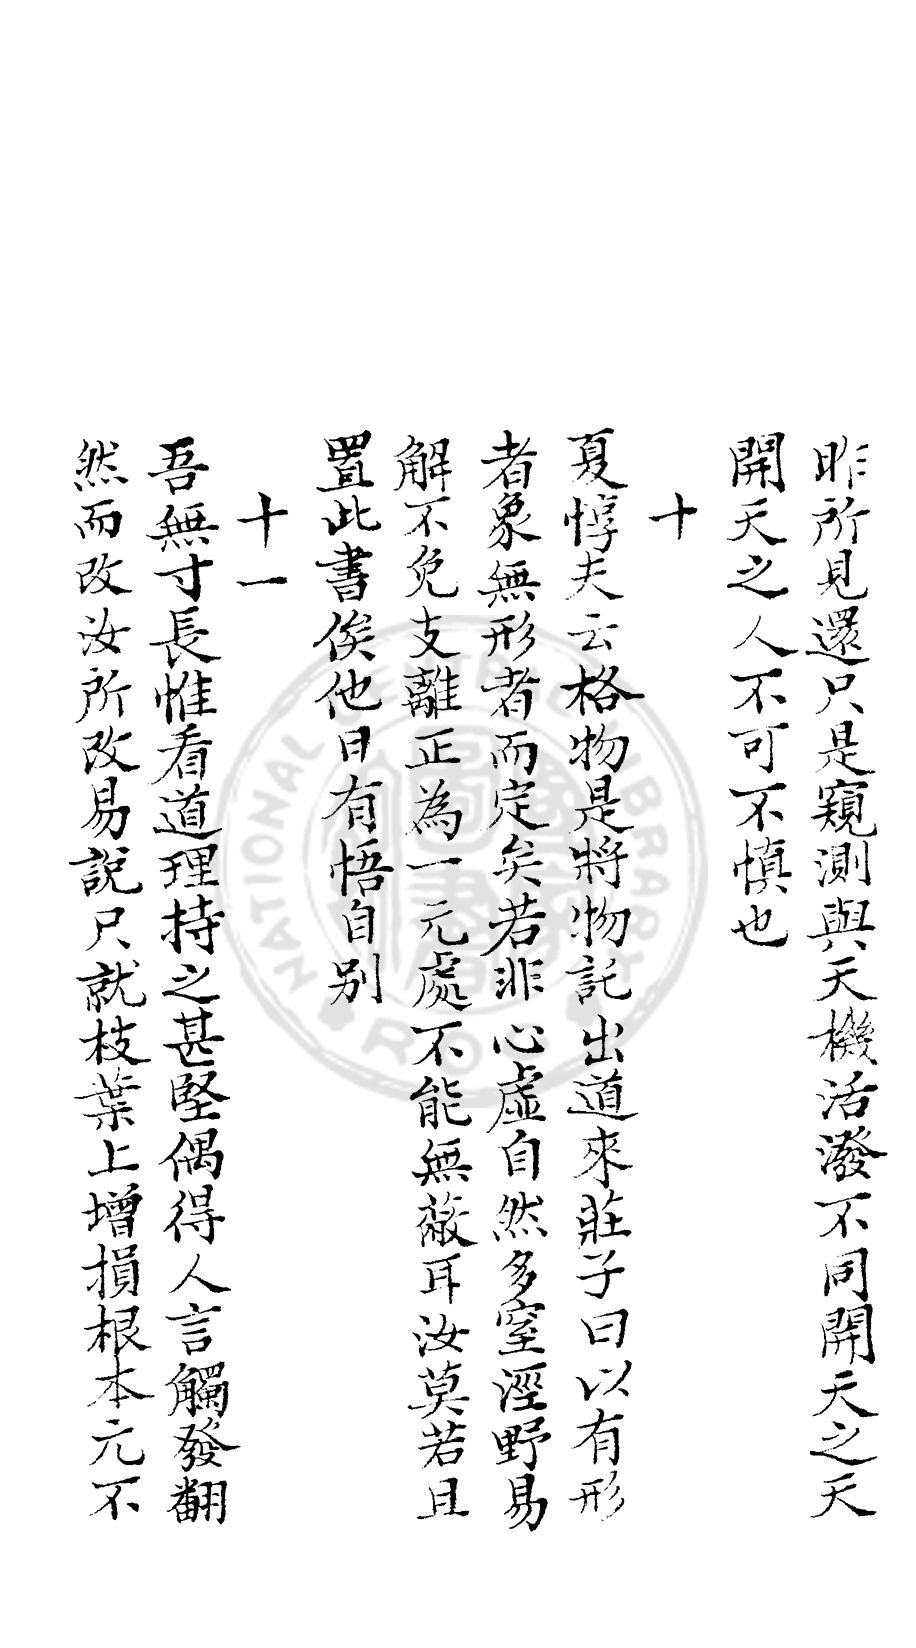 昨所見還只是窺測與天機活潑不同開天之天
開天之人不可不慎也
十
夏惇夫云格物是將物託出道來莊子曰以有形
者象無形者而定矣若非心虛自然多窒涇野易
解不免支離正為一元處不能無蔽耳汝莫若且
置此書俟他日有悟自別
十一
吾無寸長惟看道理持之甚堅偶得人言觸發翻
然而改汝所改易說只就枝葉上增損根本元不
NATIONAL CENTRAL LIBRARY
R.O.C.